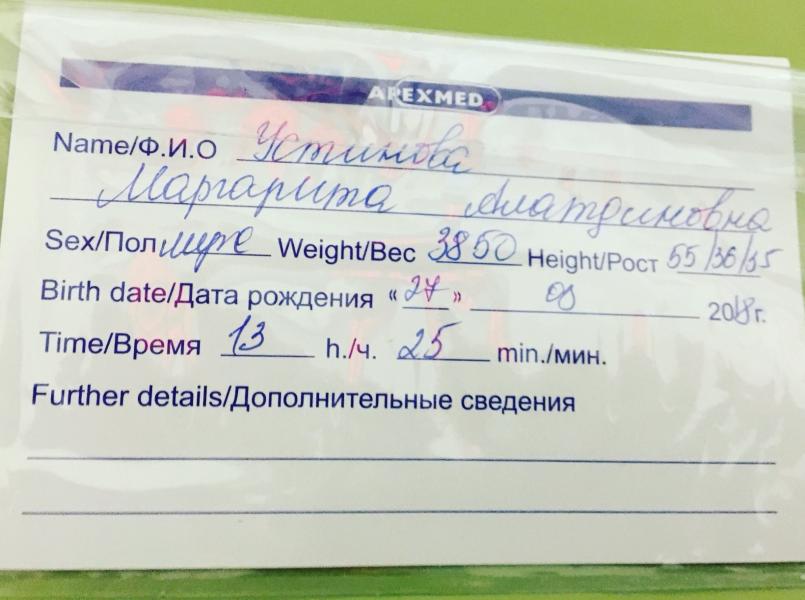 APEXMED
Name/Ф.И.О Устинова
Маргарита Алатдиновна
Sex/Пол муж Weight/Вес 3850 Height/Рост 55/36/35
Birth date/Дата рождения «27» 09 2018г.
Time/Время 13 h./ч. 25 min./мин.
Further details/Дополнительные сведения